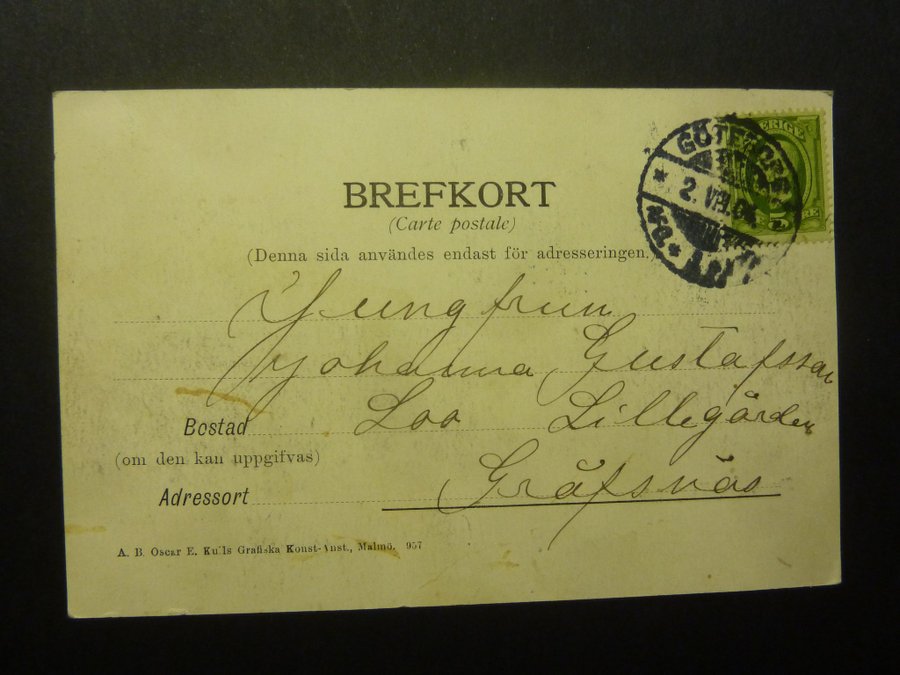 BREFKORT
(Carte postale)
(Denna sida användes endast för adresseringen.)
SVERIGE
GÖTEBORG
2.
Jungfrun
Johanna Gustafsson
Bostad Loo Lillegården
(om den kan uppgifvas)
Adressort Gräfsnäs
A. B. Oscar E. Kulls Grafiska Konst-Anst., Malmö. 957